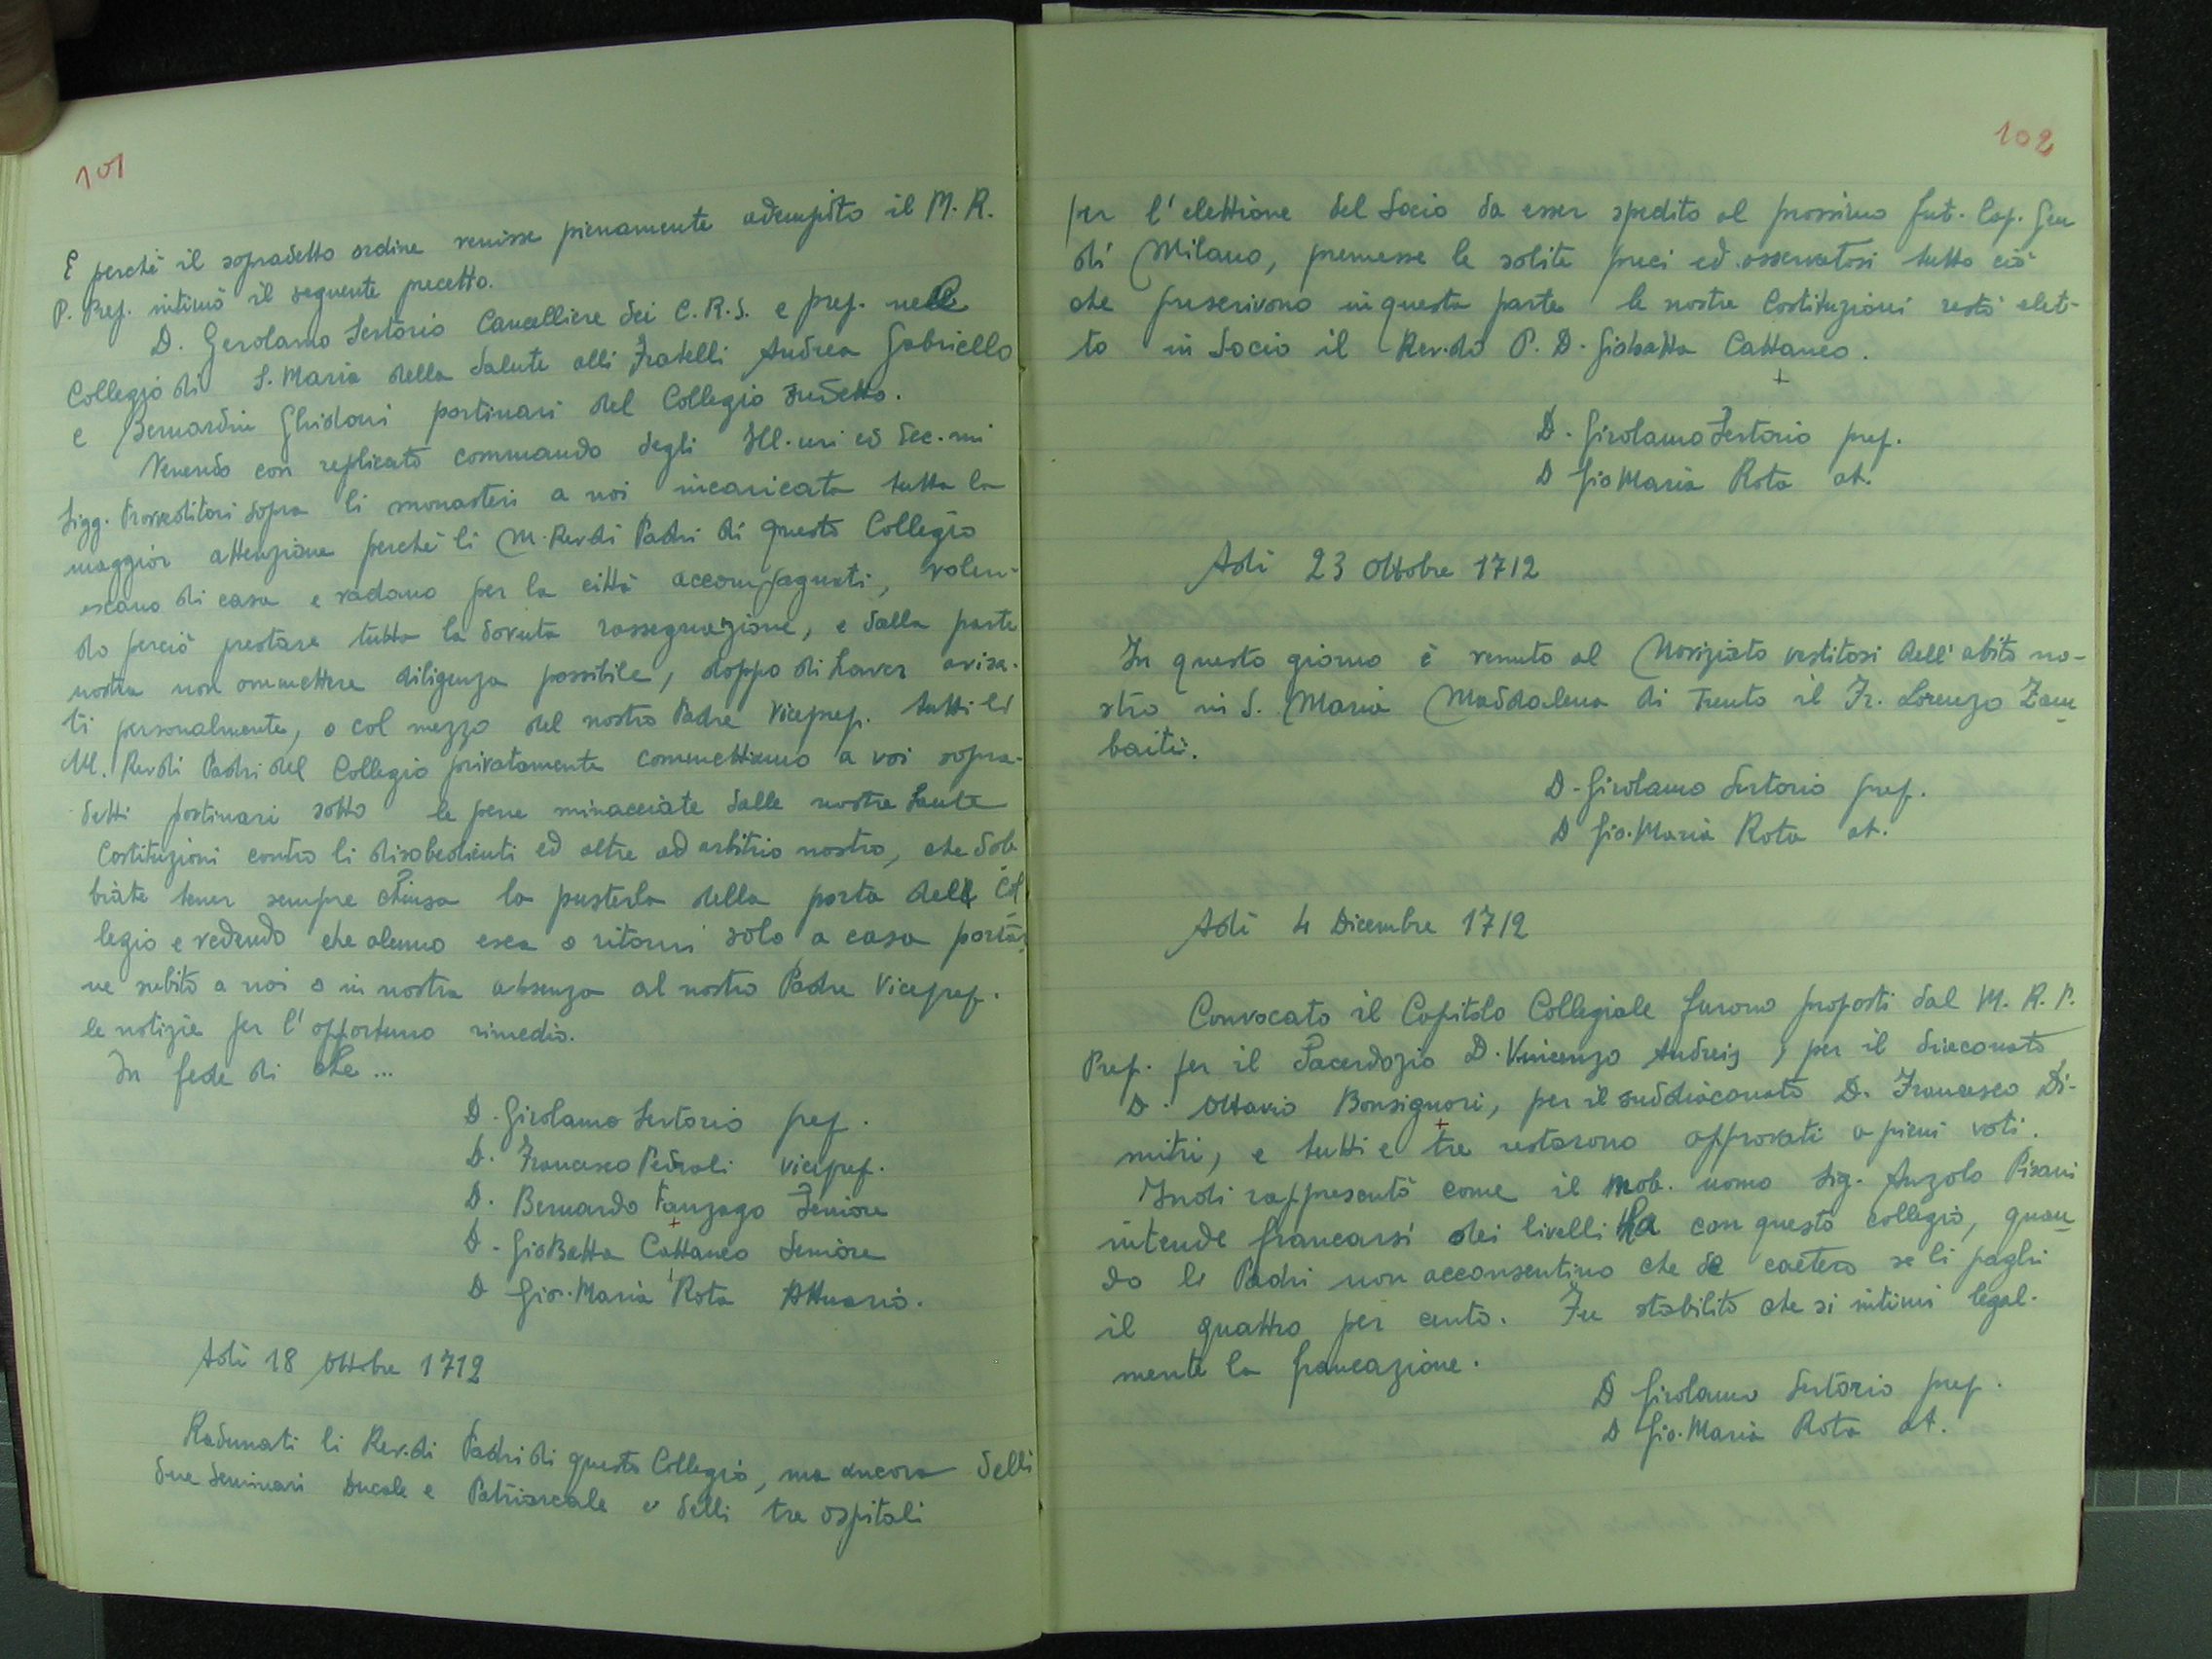 101
E perchè il sopradetto ordine venisse pienamente adempito il M. R.
P. Pref. intimò il seguente precetto.
D. Gerolamo Sertorio Cancelliere dei C.R.S. e pref. nell
Collegio di S. Maria della Salute alli Fratelli Andrea Gabriello
e Bernardin Ghidoni portinari del Collegio sudetto.
Venendo con replicato commando degli Ill.mi ed Ecc.mi
Sigg. Provveditori sopra li monasteri a noi incaricata tutta la
maggior attenzione perchè li M. Rev.di Padri di questo Collegio
escano di casa e vadano per la città accompagnati, volen-
do perciò prestare tutta la dovuta rassegnazione, e dalla parte
nostra non ommettere diligenza possibile, doppo di haver avisa-
ti personalmente, o col mezzo del nostro Padre Vicepref. tutti li
M. Rev.di Padri del Collegio privatamente commettiamo a voi sopra-
detti portinari sotto le pene minacciate dalle nostre Sante
Costituzioni contro li disobedienti ed altre ad arbitrio nostro, che dob
biate tener sempre chiusa la pusterla della porta del Col
legio e vedendo che alcuno esca o ritorni solo a casa portar
ne subito a noi o in nostra absenza al nostro Padre Vicepref.
le notizie per l'opportuno rimedio.
In fede di che ...
D. Girolamo Sertorio pref.
D. Francesco Pedrali vicepref.
D. Bernardo Fanzago Seniore
D. GioBatta Cattaneo Seniore
D Gio. Maria Rota Attuario.
Adì 18 Ottobre 1712
Radunati li Rev.di Padri di questo Collegio, ma ancora delli
due Seminari Ducale e Patriarcale e delli tre ospitali
102
per l'elettione del Socio da esser spedito al prossimo fut. Cap. Gen
di Milano, premesse le solite preci ed osservatosi tutto ciò
che prescrivono in questa parte le nostre Costituzioni restò elet-
to in Socio il Rev.do P. D. Giobatta Cattaneo.
D. Girolamo Sertorio pref.
D Gio Maria Rota at.
Adì 23 Ottobre 1712
In questo giorno è venuto al Noviziato vestitosi dell'abito no-
stro in S. Maria Maddalena di Trento il Fr. Lorenzo Zam
baiti.
D. Girolamo Sertorio pref.
D Gio. Maria Rota at.
Adì 4 Dicembre 1712
Convocato il Capitolo Collegiale furono proposti dal M. R. P.
Pref. per il Sacerdozio D. Vincenzo Andreis, per il diaconato
D. Ottavio Bonsignori, per il suddiaconato D. Francesco Di-
mitri, e tutti e tre restarono approvati a pieni voti.
Indi rappresentò come il nob. uomo Sig. Anzolo Pisani
intende francarsi dei livelli ha con questo collegio, quan
do li Padri non acconsentino che de caetero se li paghi
il quattro per cento. Fu stabilito che si intimi legal-
mente la francazione.
D Girolamo Sertorio pref.
D Gio. Maria Rota at.